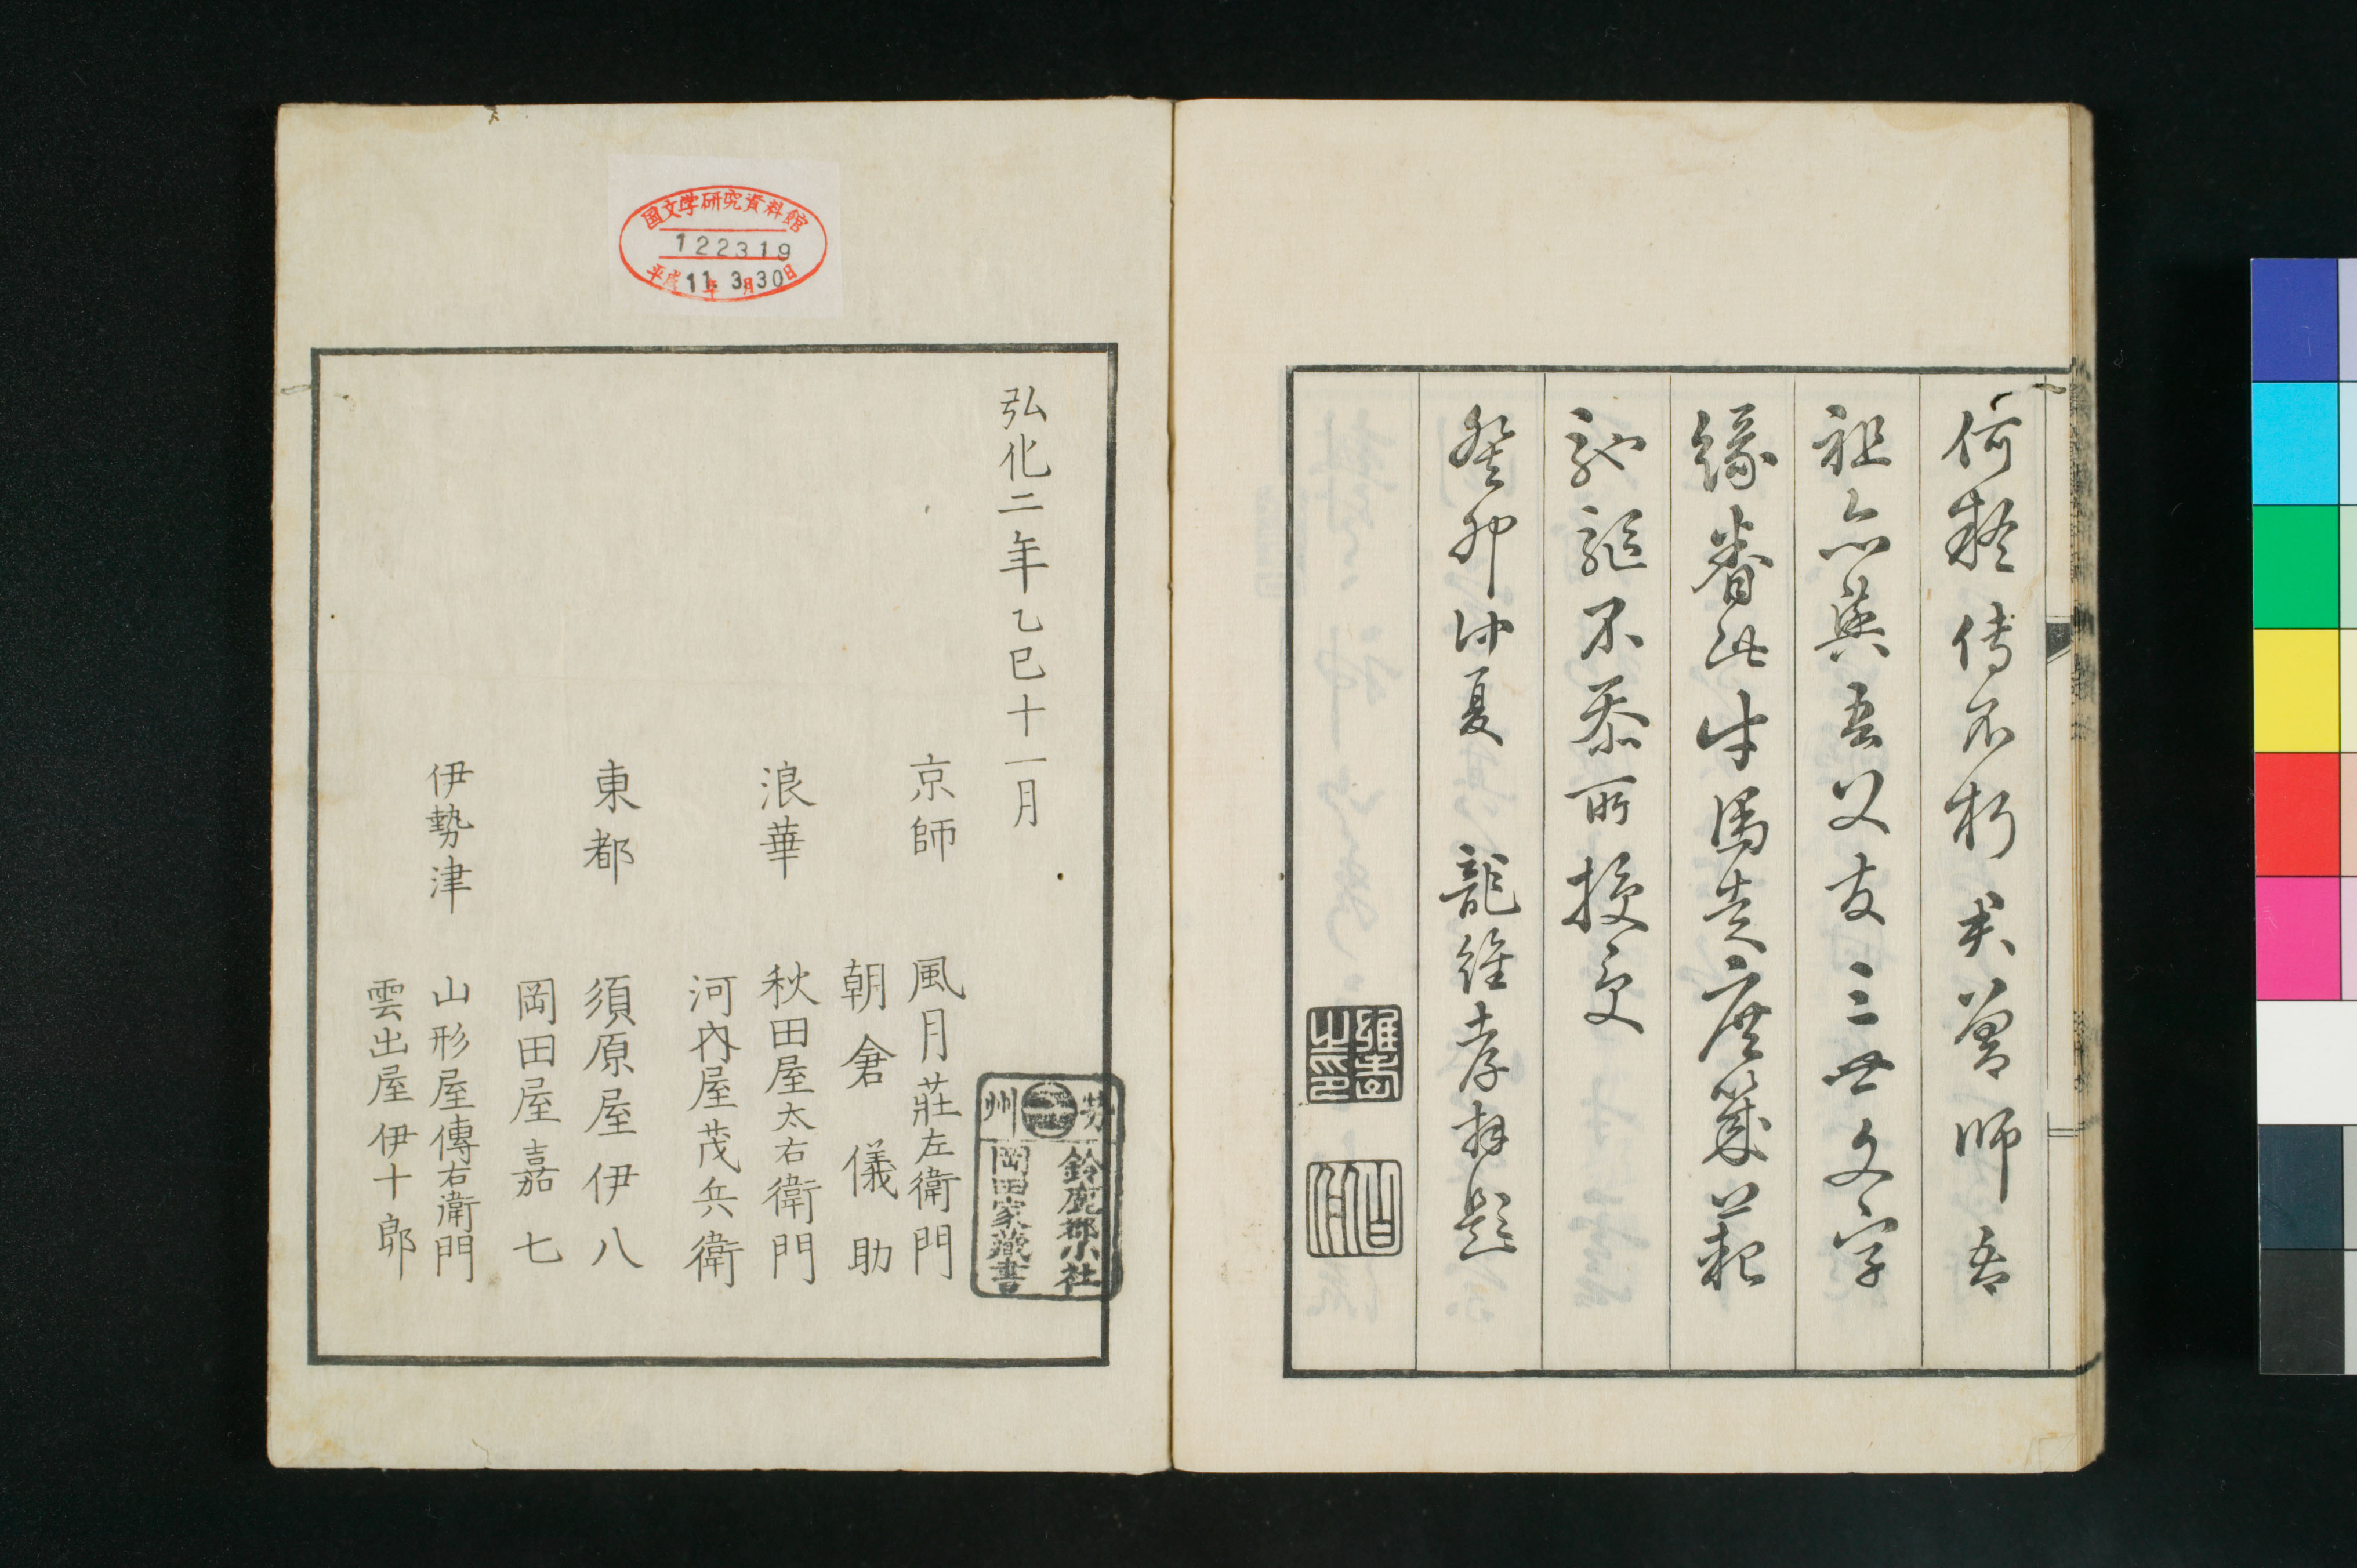 何疑傳不朽犬翁師吾
祖亦與吾父友三世文字
緣眷此牛馬走
不忝所授受
癸卯仲夏 龍維孝拜題
維孝之印
弘化二年乙巳十一月
京師 風月莊左衛門
朝倉儀助
浪華 秋田屋太右衛門
河內屋茂兵衛
東都 須原屋伊八
岡田屋嘉七
伊勢津 山形屋傳右衛門
雲出屋伊十郎
勢州
鈴鹿郡小社
岡田家藏書
国文学研究資料館
122319
平成11年3月30日